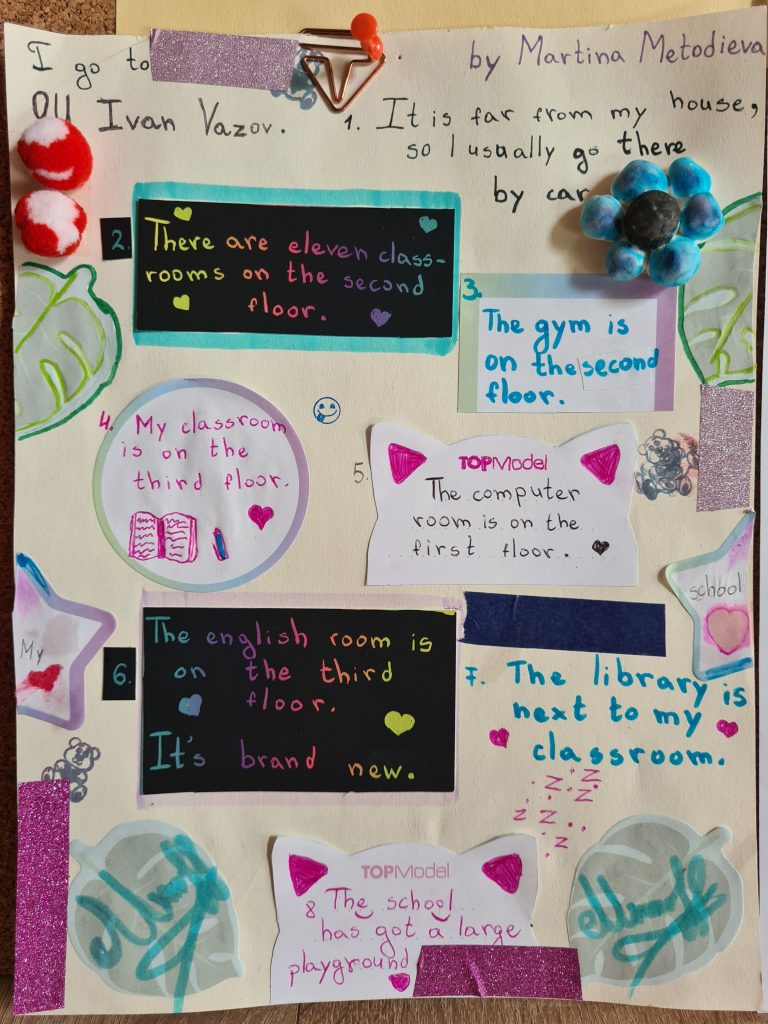 I go to
by Martina Metodieva
ОУ Ivan Vazov.
1. It is far from my house,
so I usually go there
by car
2. There are eleven class-
rooms on the second
floor.
3. The gym is
on the second
floor.
4. My classroom
is on the
third floor.
5. TOPModel
The computer
room is on the
first floor.
My
school
6. The english room is
on the third
floor.
It's brand new.
7. The library is
next to my
classroom.
z z z z z z z z
TOPModel
8 The school
has got a large
playground